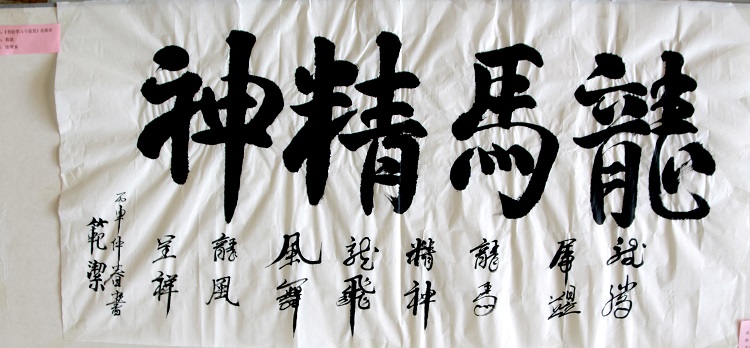 龍馬精神
龍騰
虎躍
龍馬
精神
龍飛
鳳舞
龍鳳
呈祥
丙申仲春書
範潔